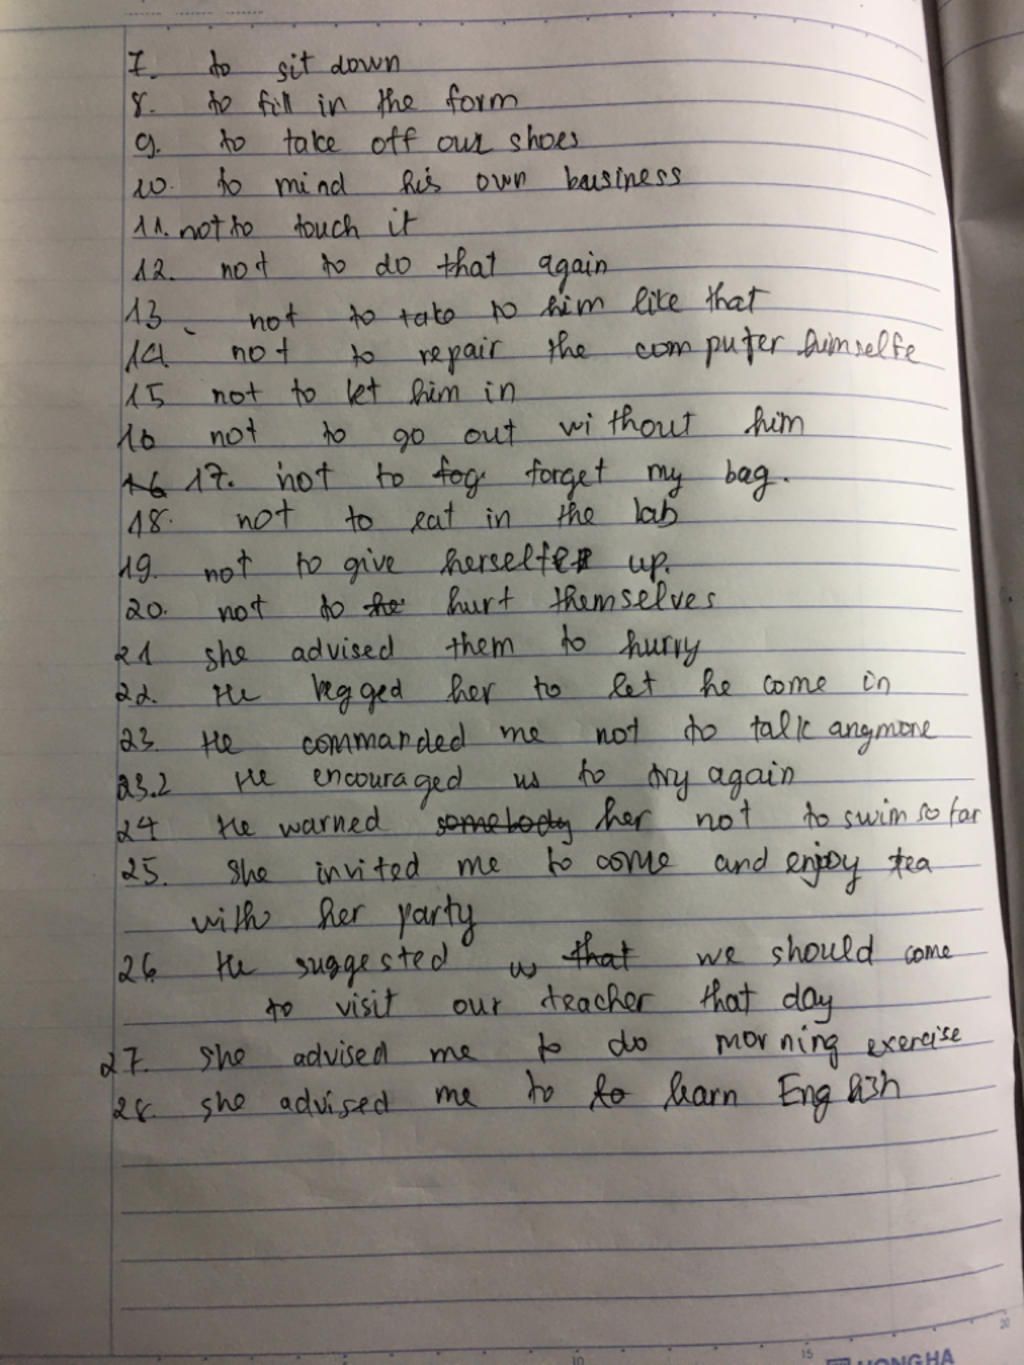 7. to sit down
8. to fill in the form
9. to take off our shoes
10. to mind his own business
11. not to touch it
12. not to do that again
13. not to tato to him like that
14. not to repair the computer himselfe
15 not to let him in
16 not to go out without him
16 17. not to fog forget my bag.
18. not to eat in the lab
19. not to give herself up.
20. not to he hurt themselves
21 she advised them to hurry
22. He begged her to let he come in
23. He commanded me not to talk angmore
23.2 He encouraged us to try again
24 He warned somebody her not to swim so far
25. She invited me to come and enjoy tea
with her party
26 He suggested that we should come
to visit our teacher that day
27. she advised me to do morning exercise
28. she advised me to to learn English
10 15 20
HONG HA